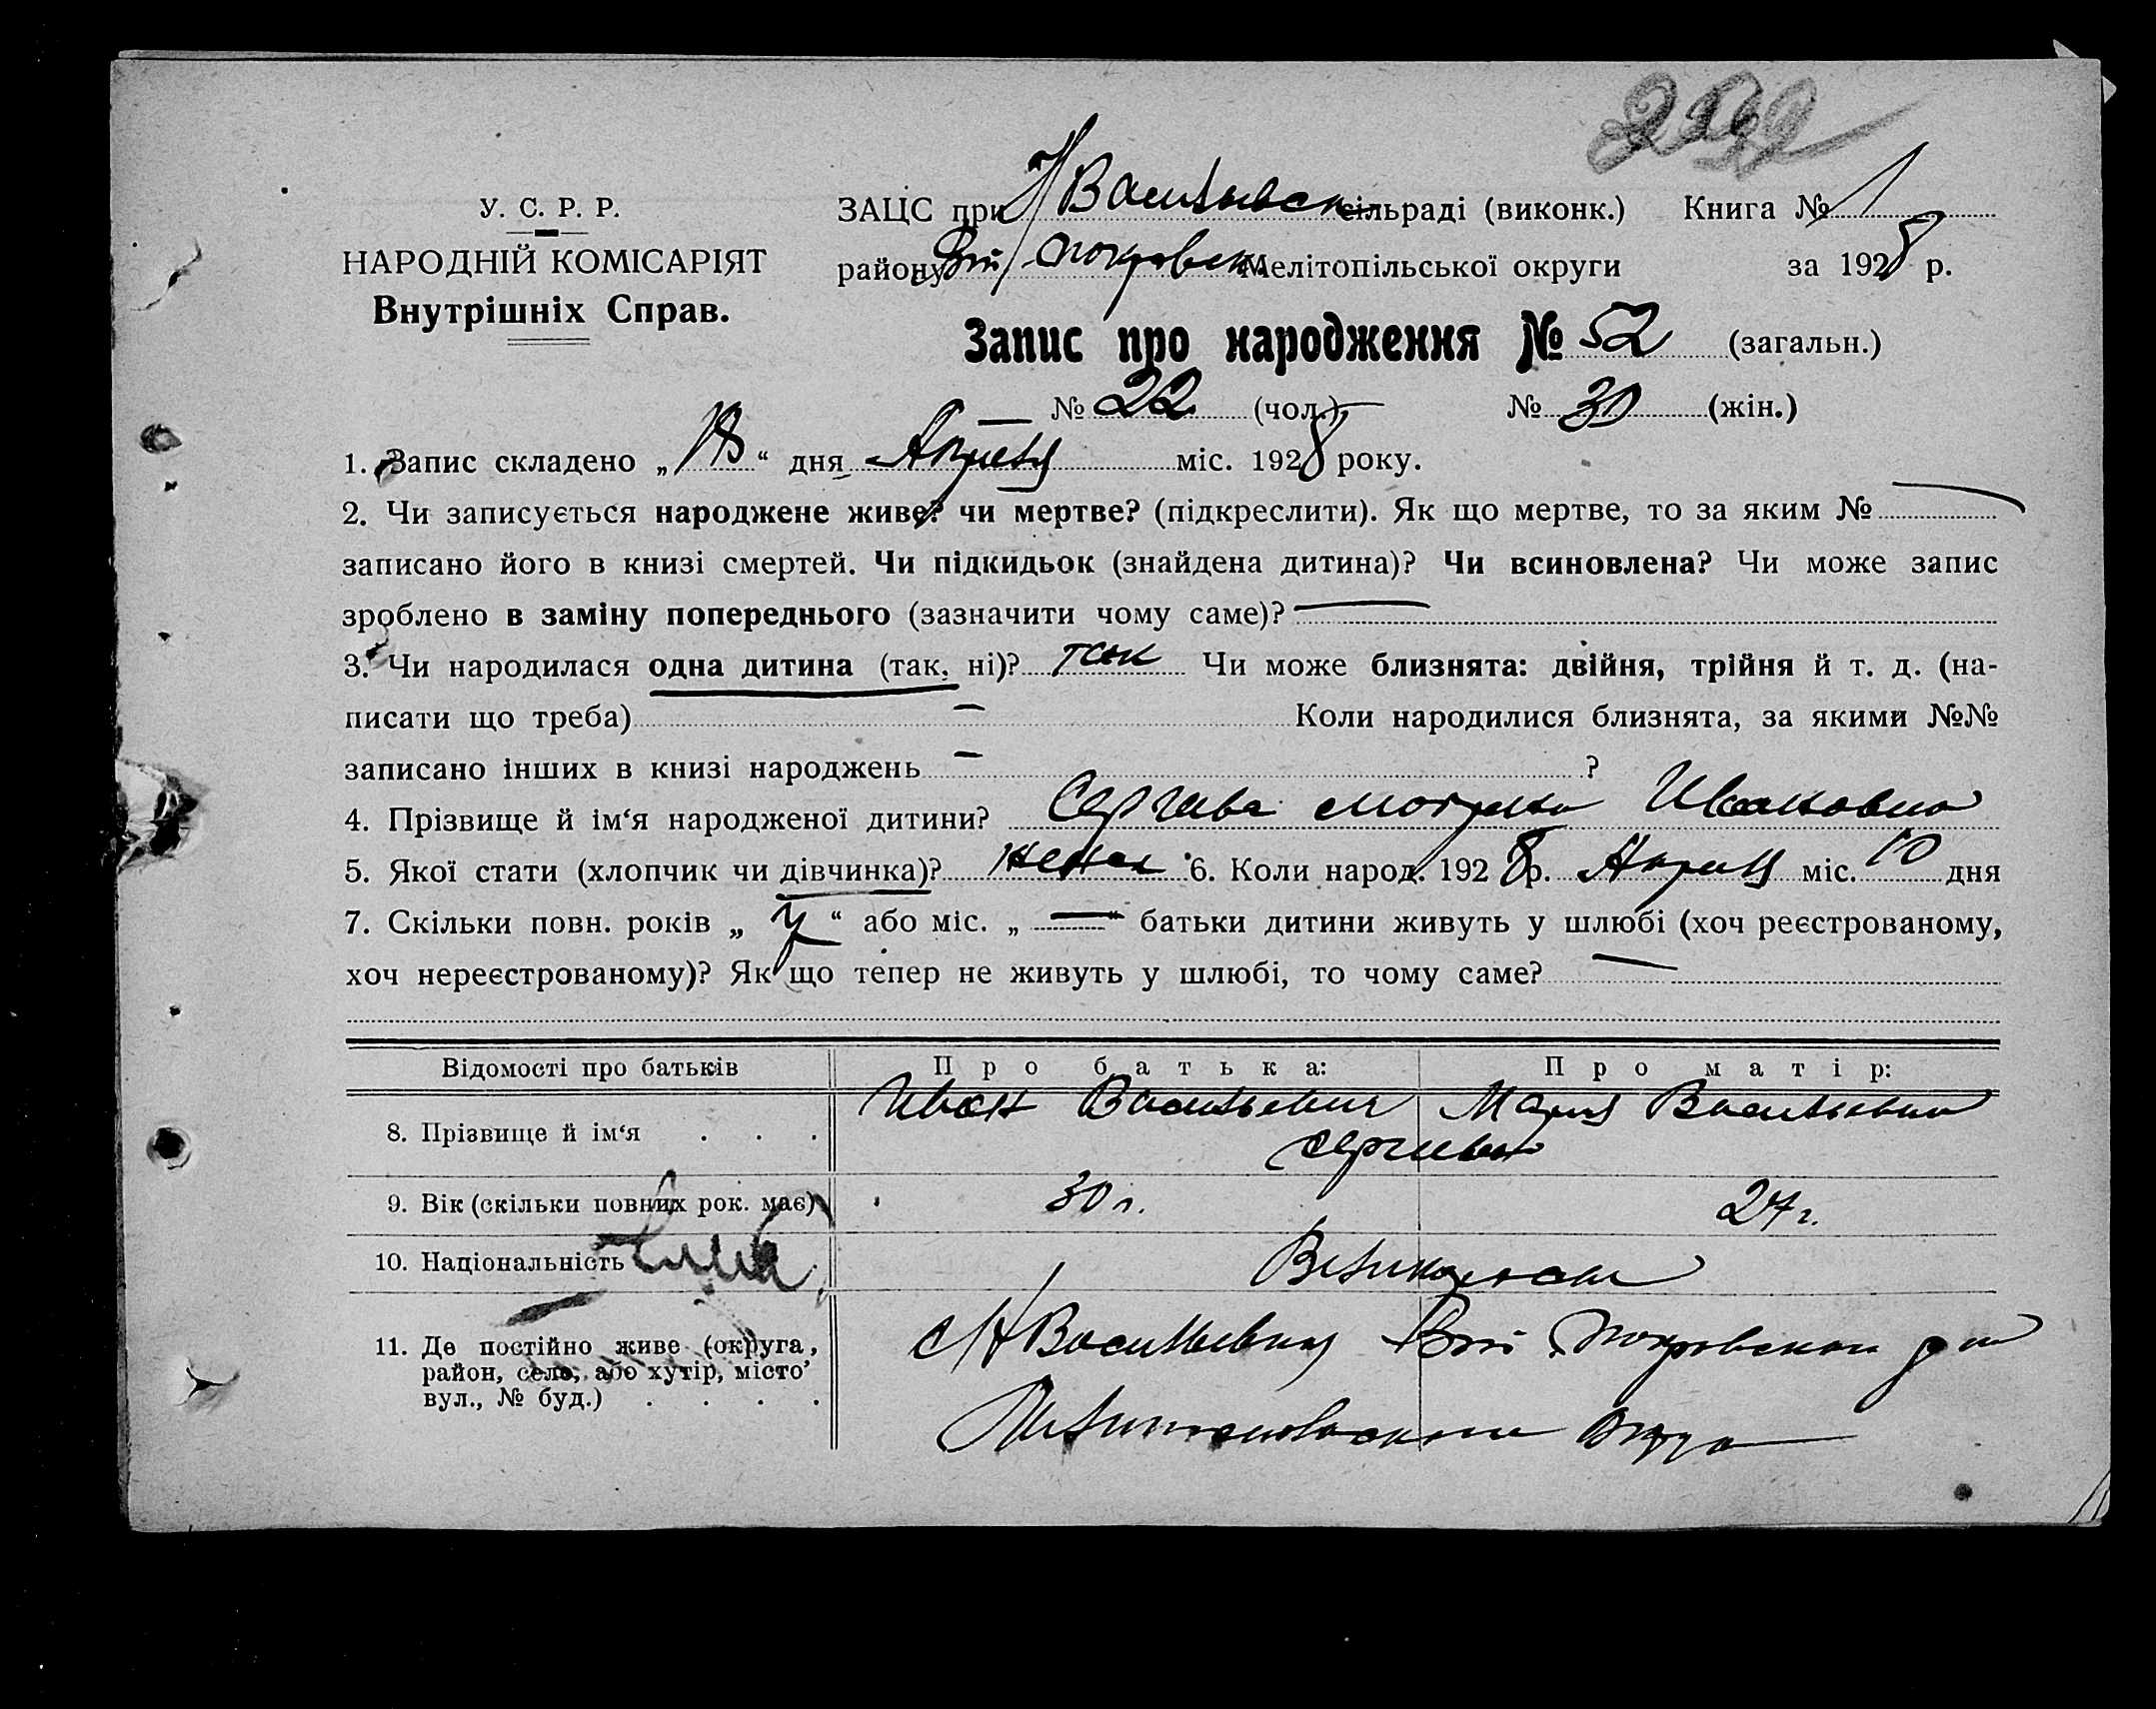 У. С. Р. Р.
НАРОДНІЙ КОМІСАРІЯТ
Внутрішніх Справ.
ЗАЦС при Н/Васильевск сільраді (виконк.) Книга № 1
району Покровск Мелітопільської округи за 1928 р.
Запис про народження № 52 (загальн.)
№ 22 (чол.) № 30 (жін.)
1. Запис складено „18“ дня Апреля міс. 1928 року.
2. Чи записується народжене живе? чи мертве? (підкреслити). Як що мертве, то за яким №
записано його в книзі смертей. Чи підкидьок (знайдена дитина)? Чи всиновлена? Чи може запис
зроблено в заміну попереднього (зазначити чому саме)? —
3. Чи народилася одна дитина (так, ні)? так Чи може близнята: двійня, трійня й т. д. (на-
писати що треба) — Коли народилися близнята, за якими №№
записано інших в книзі народжень — ?
4. Прізвище й ім‘я народженої дитини? Ивановна
5. Якої стати (хлопчик чи дівчинка)? 6. Коли народ. 1928 р. Апреля міс. 10 дня
7. Скільки повн. років „ “ або міс. „—“ батьки дитини живуть у шлюбі (хоч реєстрованому,
хоч нереєстрованому)? Як що тепер не живуть у шлюбі, то чому саме? —
Відомості про батьків Про батька: Про матір:
8. Прізвище й ім‘я . . . Иван Васильевич Мария Васильевна
9. Вік (скільки повних рок. має) 30 л. 27 г.
10. Національність
11. Де постійно живе (округа,
район, село, або хутір, місто
вул., № буд.) . . . .
с Н/Васильевка Покровского р на
Мелитопольского округа